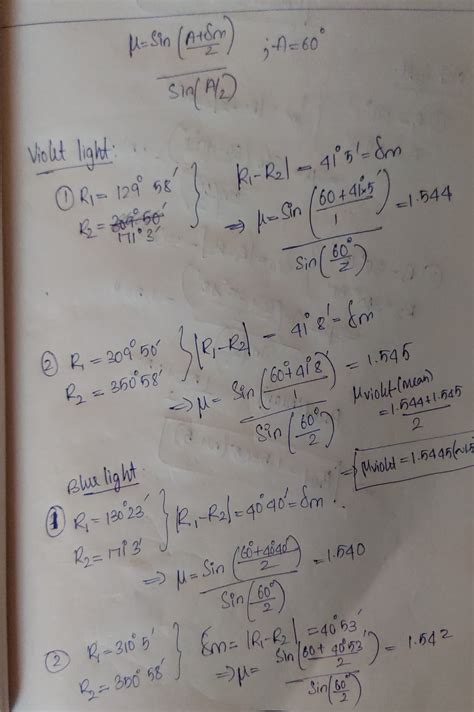 μ = Sin (A+δm/2) / Sin(A/2) ; A = 60°
Violet light:
① R₁ = 129° 58′
R₂ = 309° 50′
171° 3′
|R₁-R₂| = 41° 5′ = δm
⇒ μ = Sin (60+41°5′/1) / Sin(60°/2) = 1.544
② R₁ = 309° 50′
R₂ = 350° 58′
|R₁-R₂| = 41° 8′ = δm
⇒ μ = Sin (60°+41°8/1) / Sin(60°/2) = 1.545
μviolet(mean)
= 1.544+1.545/2
⇒ μviolet = 1.5445
Blue light
① R₁ = 130° 23′
R₂ = 171° 3′
|R₁-R₂| = 40° 40′ = δm
⇒ μ = Sin (60°+40°40′/2) / Sin(60°/2) = 1.540
② R₁ = 310° 5′
R₂ = 350° 58′
δm = |R₁-R₂| = 40° 53′
⇒ μ = Sin (60+40°53′/2) / Sin(60°/2) = 1.542